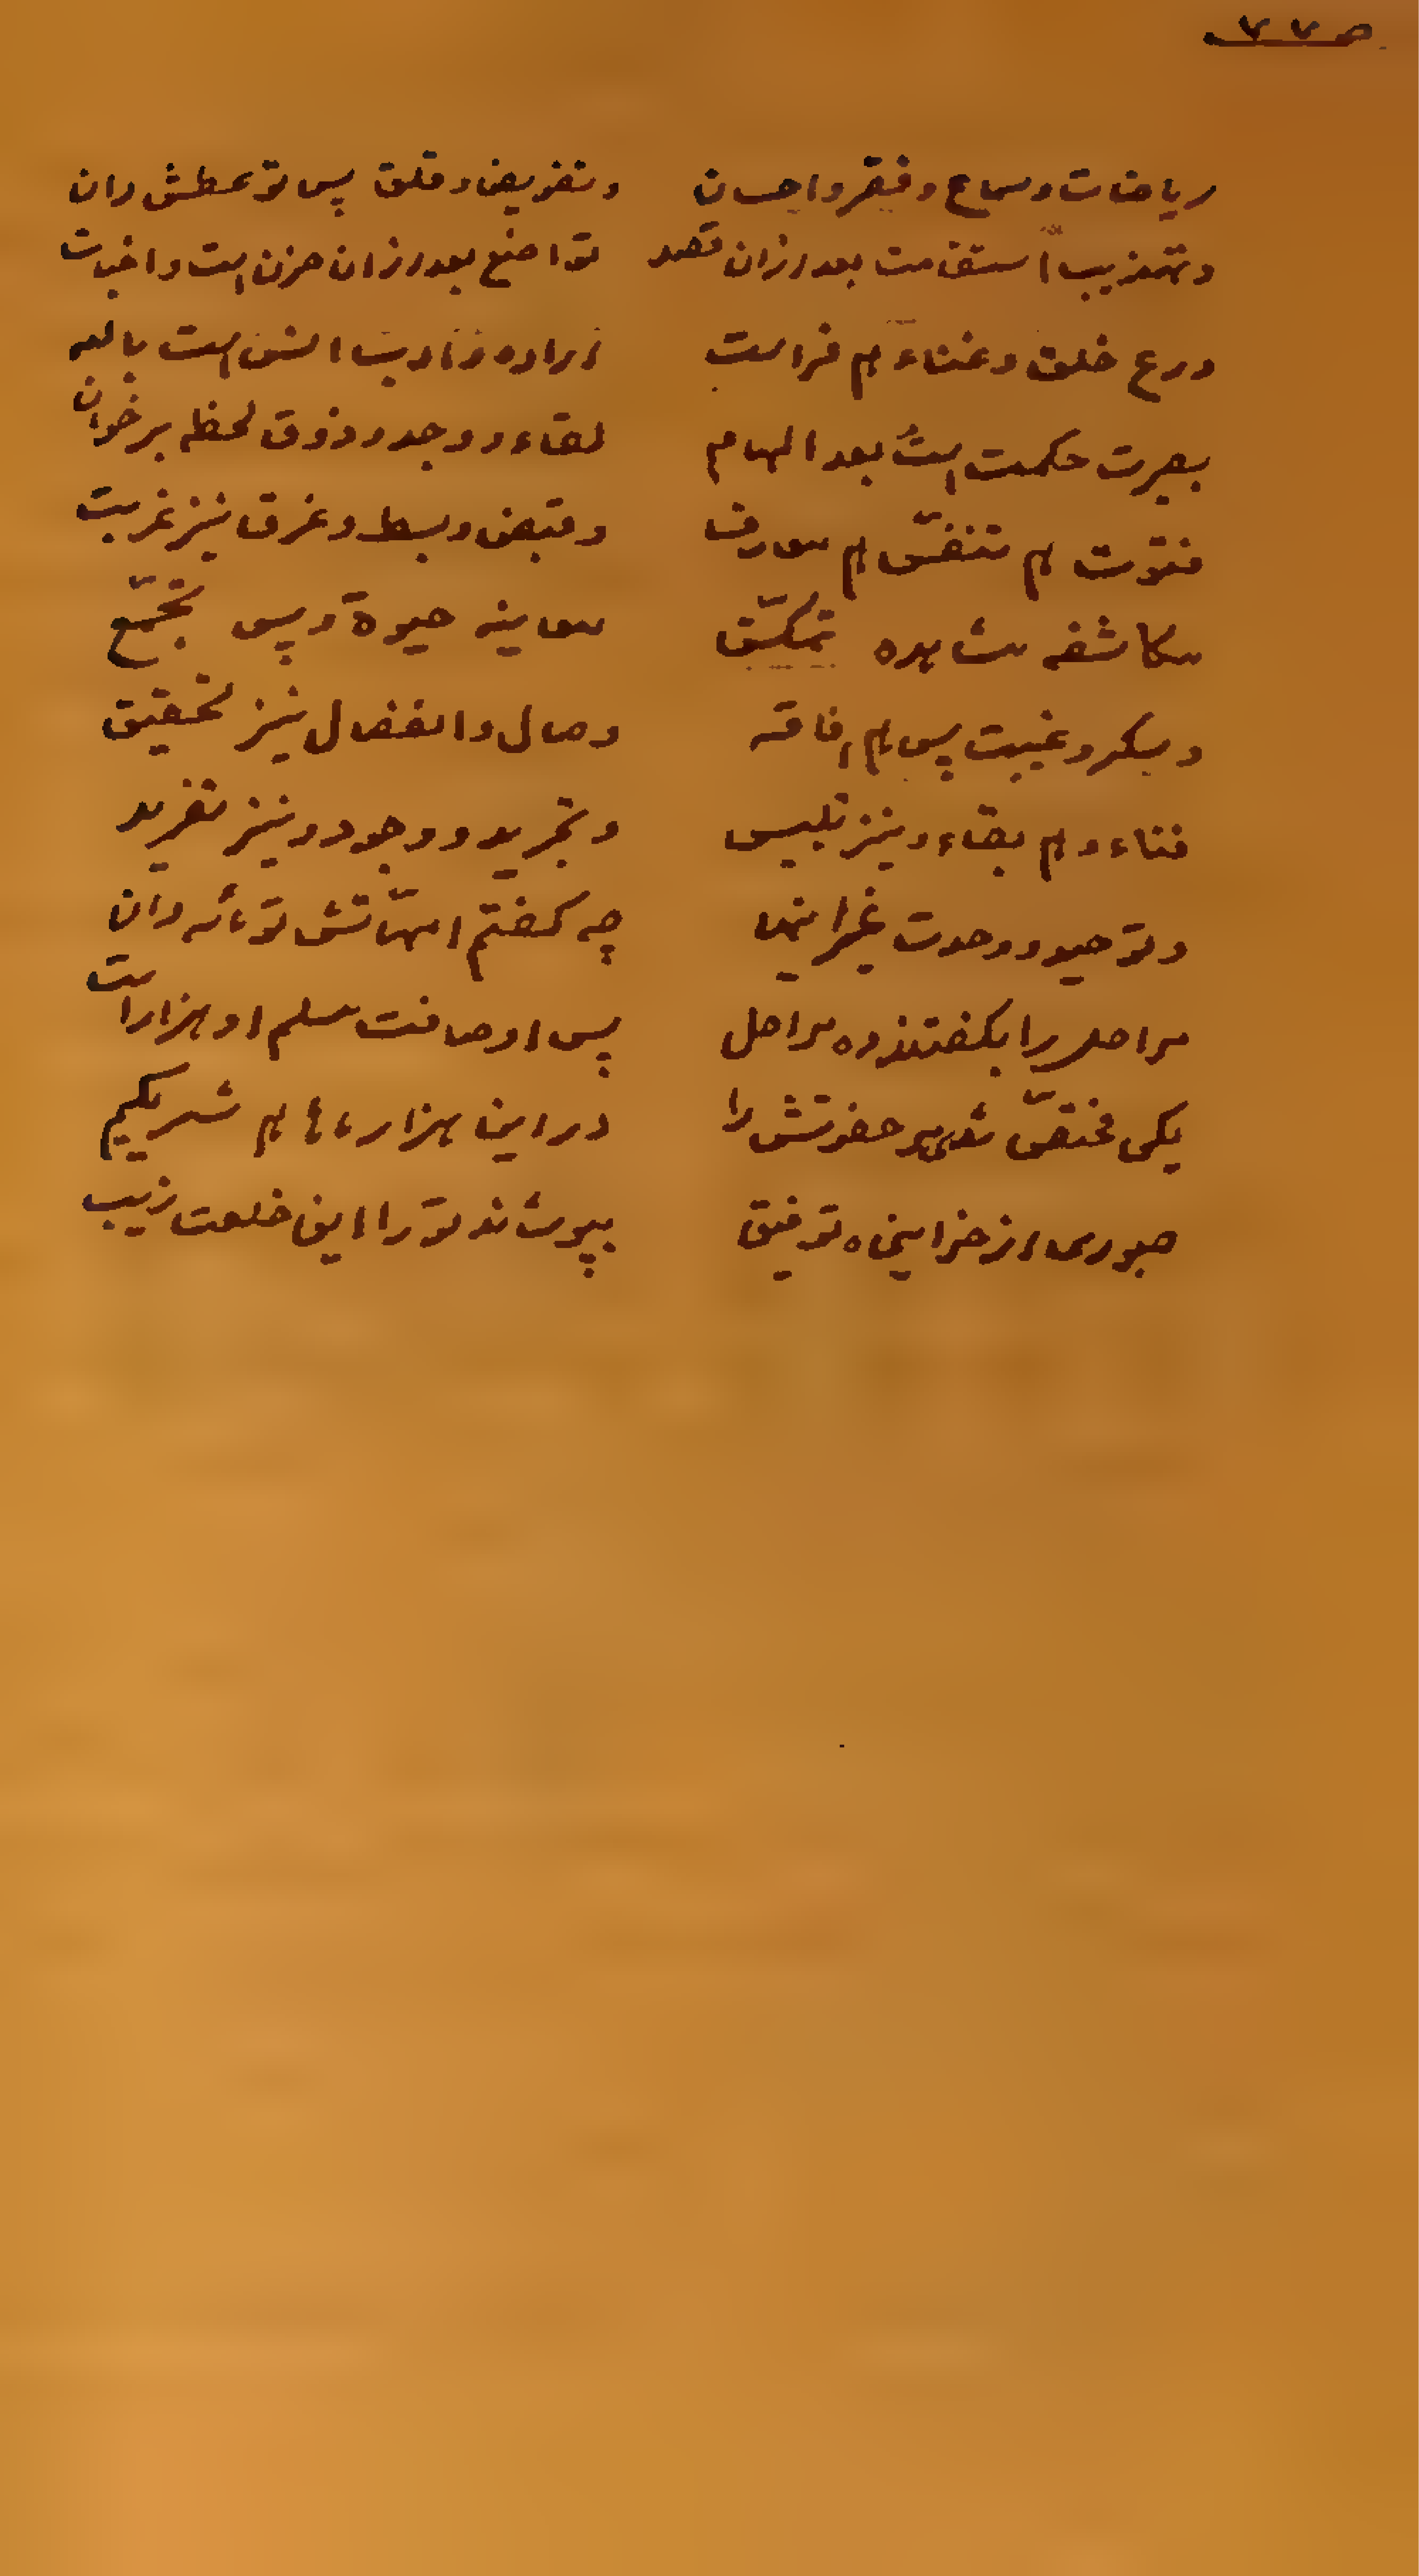 ص ۷۷
ریاضات و سماع و فقر و احسان    و تفویض و قلق پس تو عطش دان
و تهذیب استقامت بعد ازان قصد    تواضع بعد ازان حزن است و اخبات
ورع خلق و غناء هم فراست    اراده و تأدب است
بصیرت حکمت است بعد الهام    لقاء و وجد و ذوق لحظه برخوان
فتوت هم تنفس هم معارف    و قبض و بسط و غرق نیز غربت
مکاشفه مشاهده تمکن    معاینه حیوة و پس تجمع
و سکر و غیبت پس هم افاقه    وصال و انفصال نیز تحقیق
فناء و هم بقاء و نیز تلبیس    و تجرید و وجود و نیز تفرید
و توحید و وحدت غیر اینها    چه گفتم امهاتش تو دان
مراحل را بگفتند ده مراحل    پس اوصافت مسلم او هزارات
یکی مختفی حضرتش را    در این هزارها هم شریکیم
صبوری از خزاینه توفیق    بپوشند تو را این خلعت زیب